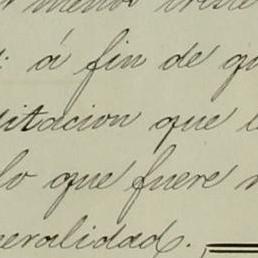 menos
á fin de
itacion que
lo que fuere
neralidad.